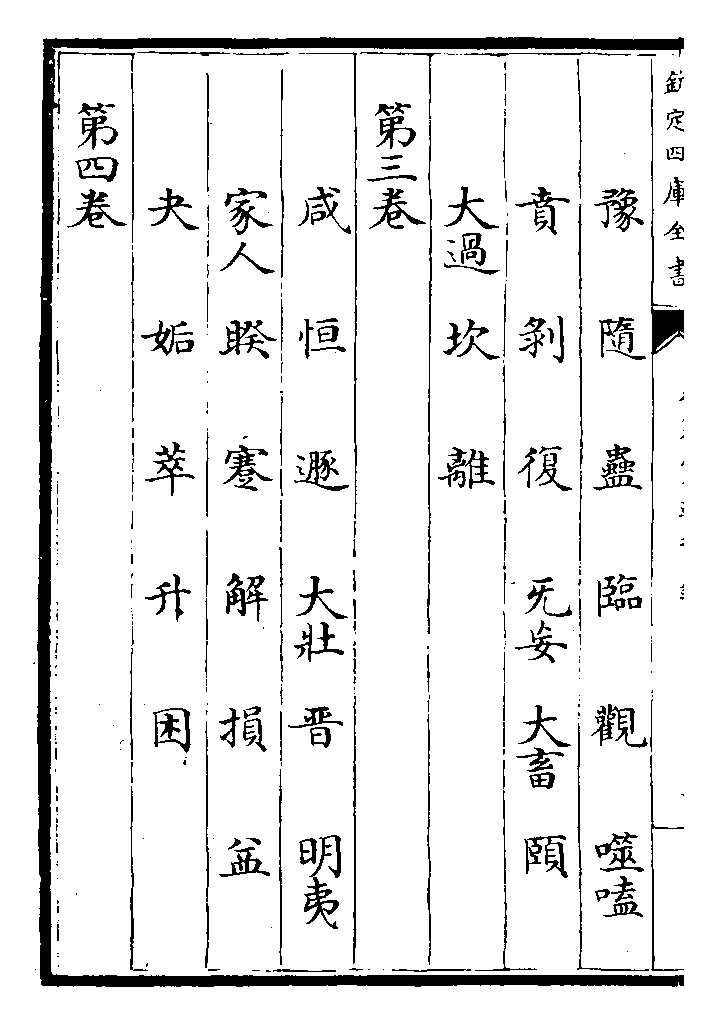 欽定四庫全書
豫 隨 蠱 臨 觀 噬嗑
賁 剝 復 旡妄 大畜 頤
大過 坎 離
第三卷
咸 恒 遯 大壯 晉 明夷
家人 睽 蹇 解 損 益
夬 姤 萃 升 困
第四卷